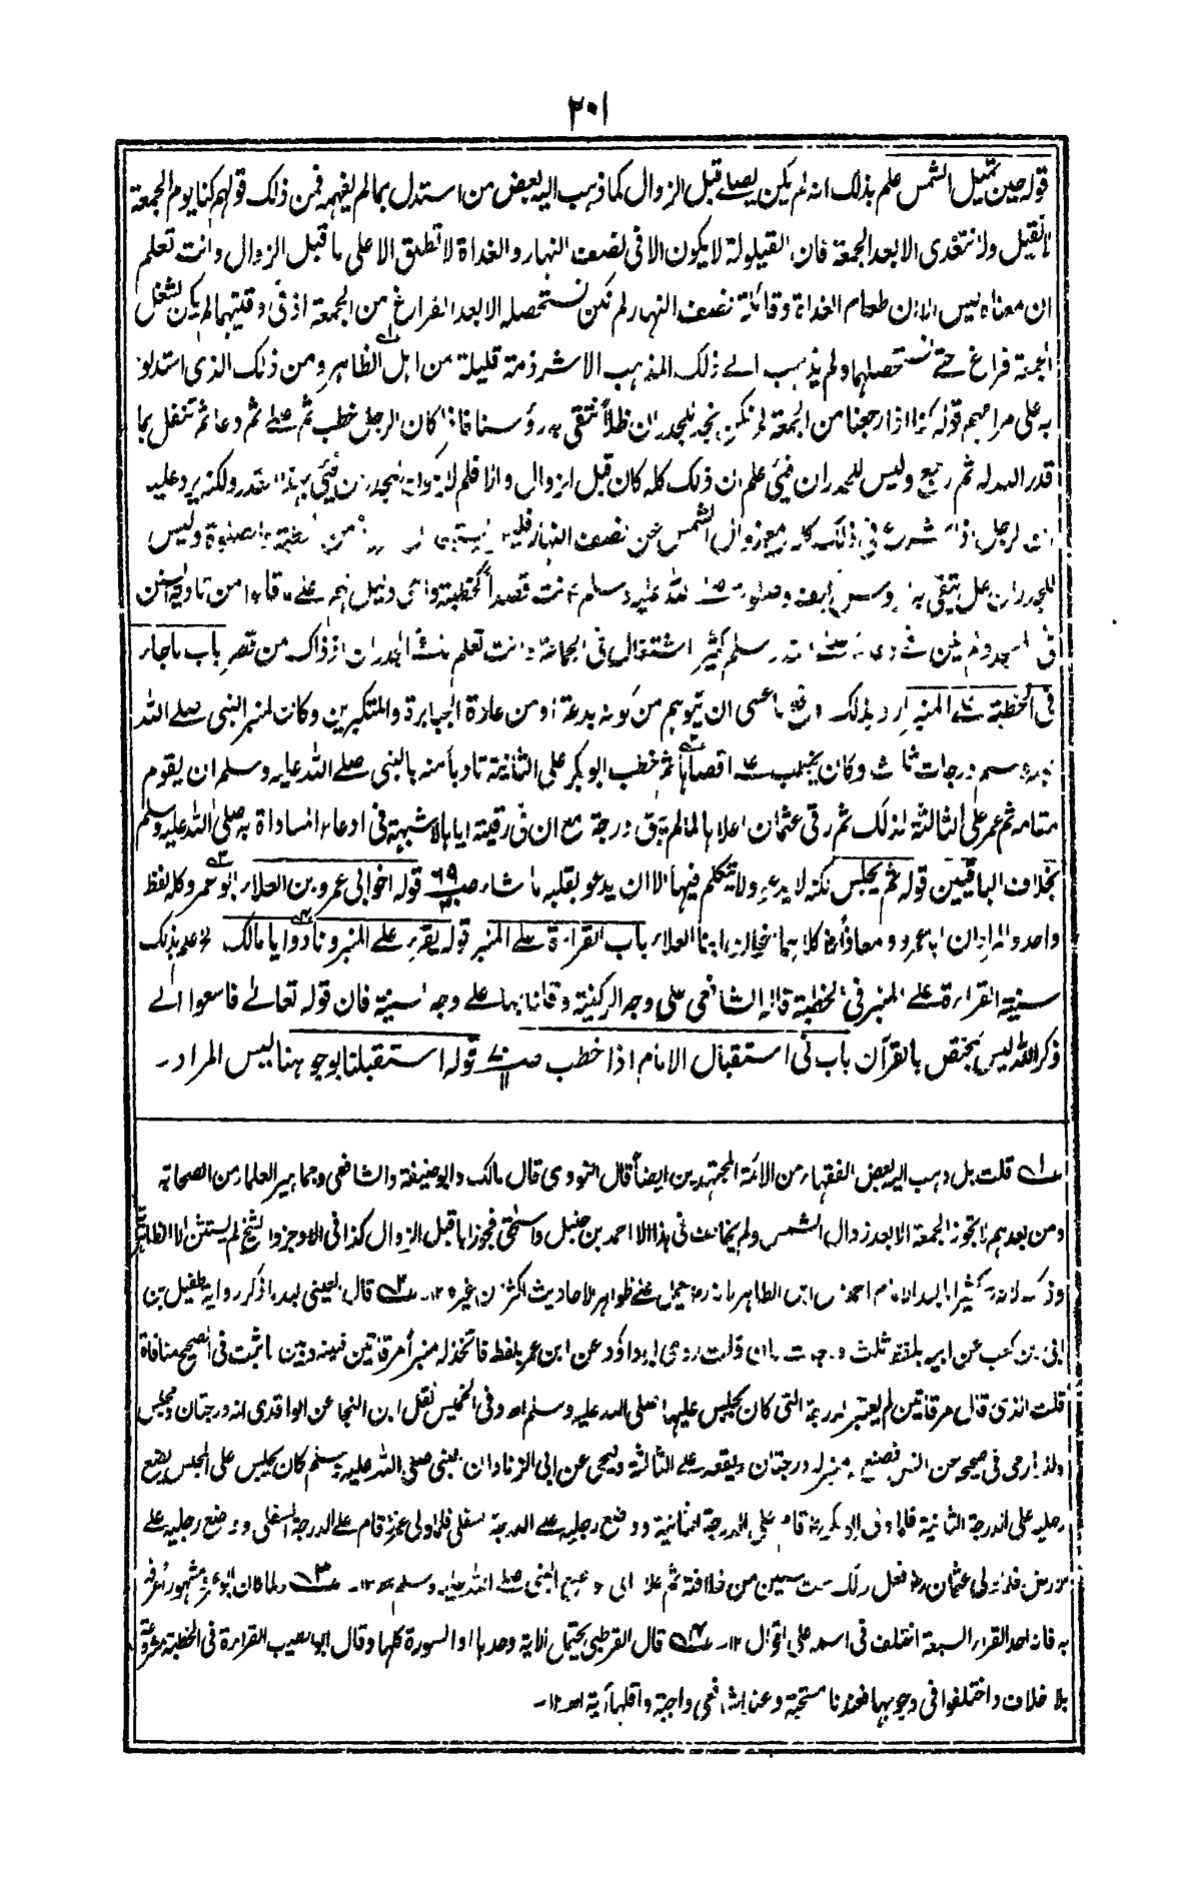 ٢٠١
قوله حين تميل الشمس علم بذلك انه لم يكن يصلے قبل الزوال كما ذهب اليه بعض من استدل بما لم يفهمه فمن ذلك قولهم كنا يوم الجمعة
لا نقيل ولا نتغدى الا بعد الجمعة فان القيلولة لا يكون الا فى نصف النهار والغداة لا تطلق الا على ما قبل الزوال وانت تعلم
ان معناه ليس الا ان طعام الغداة وقائلة نصف النهار لم تكن نستحصله الا بعد الفراغ من الجمعة اذ فى وقتيهما لم يكن لشغل
الجمعة فراغ حتے نستحصلهما ولم يذهب الے ذلك المذهب الا شرذمة قليلة من اهل الظاهر ومن ذلك الذى استدلوا
به على مرامهم قوله كنا اذا رجعنا من الجمعة لم نكن نجد للجدران ظلاً نتقى به رؤسنا فاذا كان الرجل خطب ثم صلے ثم دعا ثم تنفل بما
قدر الله له ثم رجع وليس للجدران فيئ علم ان ذلك كله كان قبل الزوال والا فلم لا يكون للجدران فيئ بهذا القدر ولكنه يرد عليه
ان الرجل اذا شرع فى ذلك كله مع زوال الشمس عن نصف النهار فليس من الخطبة والصلوة وليس
للجدران ظل يتقى به وصلوته صلے الله عليه وسلم كانت قصداً كخطبته
فى وسلم كثير اشتغال فى الجماعة وانت تعلم الجدران اذ ذاك من قصر باب ما جاء
فى الخطبة علے المنبر اراد بذلك دفع ما عسى ان يتوهم من كونه بدعة او من عادة الجبابرة والمتكبرين وكانت لمنبر النبى صلے الله
عليه وسلم درجات ثلاث وكان يخطب علے اقصاها ثم خطب ابو بكر على الثانية تادباً منه بالنبى صلے الله عليه وسلم ان يقوم
مقامه ثم عمر على الثالثة لذلك ثم رقى عثمان اعلاها لما لم يبق درجة مع ان فى رقيته اياها لا شبهة فى ادعاء المساواة به صلى الله عليه وسلم
بخلاف الباقيين قوله ثم يجلس لكنه لا يدعو ولا يتكلم فيها الا ان يدعو بقلبه ما شاء صـ٦٩ قوله اخو ابى عمرو بن العلاء ابو عمر وكله لفظ
واحد والمراد ان ابا عمرو ومعاذاً كلاهما اخوان ابنا العلاء باب القراءة علے المنبر قوله يقرء علے المنبر ونادوا يا مالك علم بذلك
سنية القراءة علے المنبر فى الخطبة قاله الشافعى على وجه الركنية وقلنا بها علے وجه السنية فان قوله تعالے فاسعوا الے
ذكر الله ليس بمختص بالقرآن باب فى استقبال الامام اذا خطب صـ قوله استقبلنا بوجوهنا ليس المراد -
لـه قلت بل ذهب اليه بعض الفقهاء من الائمة المجتهدين ايضاً قال النووى قال مالك وابو حنيفة والشافعى وجماهير العلماء من الصحابة
ومن بعدهم لا تجوز الجمعة الا بعد زوال الشمس ولم يخالف فى هذا الا احمد بن حنبل واسحٰق فجوزاها قبل الزوال كذا فى الاوجز والشيخ لم يستثن الا الظاهرية
وذلك لانه كثيرا ما يعد الامام احمد من اهل الظاهر لانه رضـ يحمل علے ظواهر الاحاديث اكثر من غيره ١٢- ٢ـه قال العينى بعد ما ذكر رواية طفيل بن
ابى بن كعب عن ابيه بلفظ ثلث درجات فان قلت روى ابو داؤد عن ابن عمر بلفظ فاتخذ له منبراً مرقاتين فبينه وبين ما ثبت فى الصحيح منافاة
قلت الذى قال مرقاتين لم يعتبر الدرجة التى كان يجلس عليها صلى الله عليه وسلم اھ وفى الخميس نقل ابن النجار عن الواقدى انه درجتان ومجلس
وللدارمى فى صحيحه عن انس فصنع له منبر له درجتان ويقعد علے الثالثة ويحيى عن ابى الزناد ان النبى صلى الله عليه وسلم كان يجلس على المجلس ويضع
رجليه على الدرجة الثانية فلما ولى ابو بكر رضـ قام على الدرجة الثانية ووضع رجليه علے الدرجة السفلى فلما ولى عمر رضـ قام علے الدرجة السفلى ووضع رجليه علے
الارض فلما ولى عثمان رضـ فعل ذلك ست سنين من خلافته ثم علا الى موضع النبى صلے الله عليه وسلم اھ ١٢- ٣ـه ولما كان ابو عمرو مشهوراً عرفه
به فانه احد القراء السبعة اختلف فى اسمه على اقوال ١٢- ٤ـه قال القرطبى يحتمل الآية وحدها او السورة كلها وقال ابو الطيب القراءة فى الخطبة مشروعة
بلا خلاف واختلفوا فى وجوبها فعندنا مستحبة وعند الشافعى واجبة واقلها آية اھ ١٢-